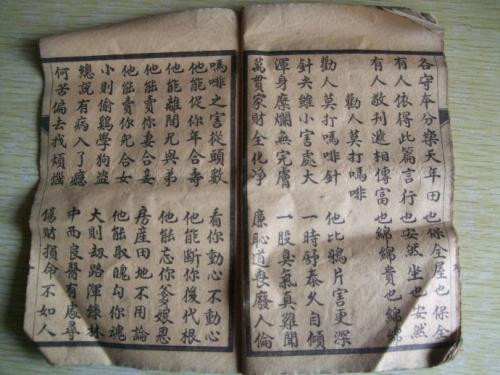 各守本分樂天年田也保全屋也保全
有人依得此篇言行也安然坐也安然
有人敬刊遞相傳富也綿綿貴也綿綿
勸人莫打嗎啡
勸人莫打嗎啡針 他比鴉片害更深
針尖雖小害處大 一時舒泰久自傾
渾身糜爛無完膚 一股臭氣真難聞
萬貫家財全化淨 廉恥道喪廢人倫
嗎啡之害從頭數 看你動心不動心
他能促你年合壽 他能斷你後代根
他能離間兄與弟 他能忘你爹娘恩
他能賣你妻合妾 房産田地不用論
他能賣你兒合女 他能取魄勾你魂
小則偷鷄學狗盜 大則刼路渾綠林
總說有病入了癮 中西良醫有處尋
何苦偏去找煩惱 傷財損命不如人